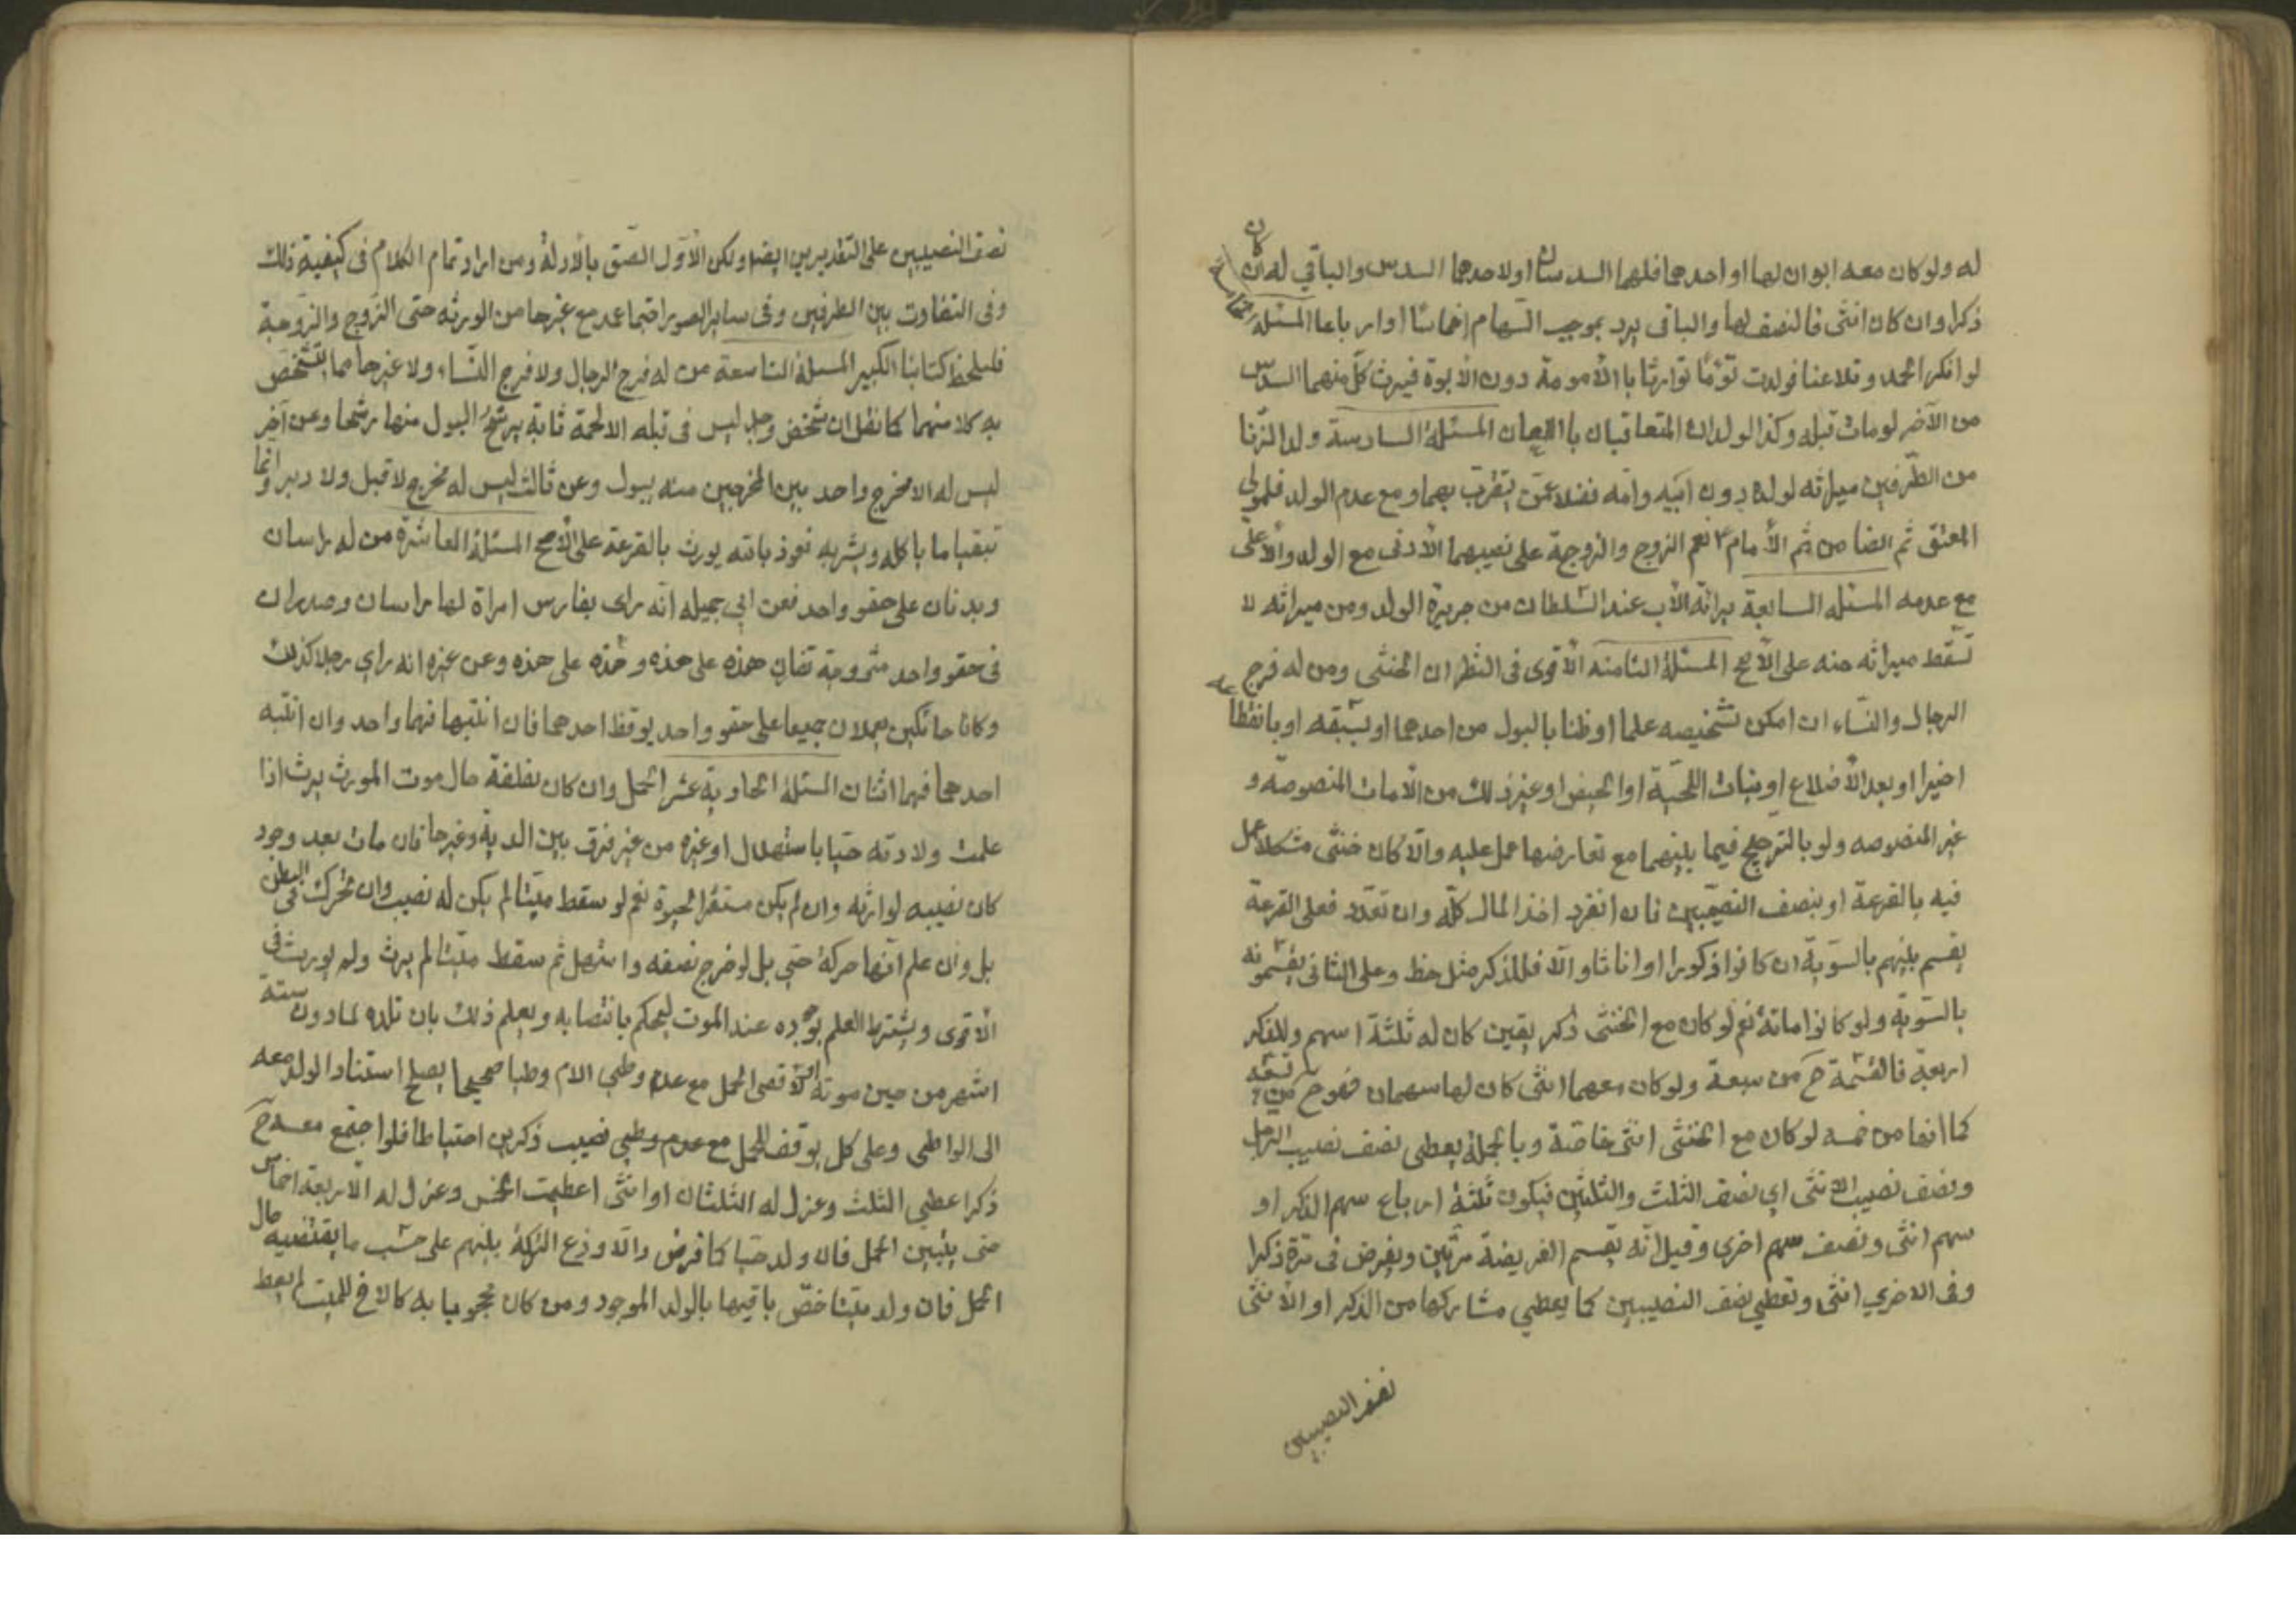 له ولو كان معه ابوان لها او احدهما فلهما السدسان او لاحدهما السدس والباقي له ان كان
ذكرا وان كان انثى فالنصف لها والباقى يرد بموجب السهام اخماسا او ارباعا المسئلة الخامسة
لو انكر الحمل وتلاعنا فولدت توءما توارثا بالأمومة دون الأبوة فيرث كل منهما السدس
من الآخر لومات قبله وكذا الولدان المتعاقبان باللعان المسئلة السادسة ولد الزنا
من الطرفين ميراثه لولده دون ابيه وامه فضلا عمن يتقرب بهما ومع عدم الولد فلمولى
المعتق ثم الضامن ثم الأمام ع نعم الزوج والزوجة على نصيبهما الأدنى مع الولد والأعلى
مع عدمه المسئله السابعة براءة الأب عند السلطان من جريرة الولد ومن ميراثه لا
تسقط ميراثه منه على الأصح المسئلة الثامنه الأقوى فى النظر ان الخنثى ومن له فرج
الرجال والنساء ان امكن تشخيصه علما او ظنا بالبول من احدهما او بسبقه او بانقطاعه
اخيرا او بعد الأضلاع او بنبات اللحية او الحيض او غير ذلك من الأمارات المنصوصة و
غير المنصوصه ولو بالترجيح فيما بينهما مع تعارضها عمل عليه والا كان خنثى مشكلا عمل
فيه بالقرعة او بنصف النصيبين فان انفرد اخذ المال كله وان تعدد فعلى القرعة
يقسم بينهم بالسوية ان كانوا ذكورا او اناثا والا فللذكر مثل حظ وعلى الثانى يقسمونه
بالسوية ولو كانوا مائة نعم لو كان مع الخنثى ذكر بيقين كان له ثلثة اسهم وللذكر
اربعة فالقسمة ح من سبعة ولو كان معهما انثى كان لها سهمان فهو ح من تسعة
كما انها من خمسه لو كان مع الخنثى انثى خاصة وبالجملة يعطى نصف نصيب الرجل
ونصف نصيب الانثى اى نصف الثلث والثلثين فيكون ثلثة ارباع سهم الذكر او
سهم انثى ونصف سهم اخرى وقيل انه تقسم الفريضة مرتين ويفرض فى مرة ذكرا
وفى الاخرى انثى وتعطى نصف النصيبين كما يعطى مشاركها من الذكر او الأنثى
نصف النصيبين
نصف النصيبين على التقديرين ايضا ولكن الأول الصق بالأدلة ومن اراد تمام الكلام فى كيفية ذلك
وفى التفاوت بين الطرفين وفى ساير الصور اجتماعه مع غيرها من الورثه حتى الزوج والزوجة
فليلحظ كتابنا الكبير المسئلة التاسعة من له فرج الرجال ولا فرج النساء ولا غيرها مما يتشخص
به كلا منهما كما نقل ان شخص وجد ليس فى قبله الا لحمة ثابتة يرشح البول منها رشحا وعن آخر
ليس له الا مخرج واحد بين المخرجين منه يبول وعن ثالث ليس له مخرج لا قبل ولا دبر وانما
يتقيا ما ياكله ويشربه نعوذ بالله يورث بالقرعة على الأصح المسئلة العاشرة من له راسان
وبدنان على حقو واحد فعن ابى جميله انه راى بفارس امراة لها راسان وصدران
فى حقو واحد متزوجة تغار هذه على هذه وهذه على هذه وعن غيره انه راى رجلا كذلك
وكانا حائكين يعملان جميعا على حقو واحد يوقظ احدهما فان انتبها فهما واحد وان انتبه
احدهما فهما اثنان المسئلة الحادية عشر الحمل وان كان نطفة حال موت المورث يرث اذا
علمت ولادته حيا باستهلال او غيره من غير فرق بين الدية وغيرها فان مات بعد وجود
كان نصيبه لوارثه وان لم يكن مستقر الحيوة نعم لو سقط ميتا لم يكن له نصيب وان تحرك فى البطن
بل وان علم انها حركة حى بل لو خرج نصفه واستهل ثم سقط ميتا لم يرث ولم يورث فى
الأقوى ويشترط العلم بوجوده عند الموت ليحكم بانتصابه ويعلم ذلك بان تلده لما دون ستة
اشهر من حين موته او لأقصى الحمل مع عدم وطى الام وطيا صحيحا يصلح استناد الولد معه
الى الواطى وعلى كل يوقف للحمل مع عدم وطيى نصيب ذكرين احتياطا فلو اجتمع معه ح
ذكرا عطى الثلث وعزل له الثلثان او انثى اعطيت الخمس وعزل له الأربعة اخماس
حتى يتبين الحمل فان ولد حيا كما فرض والا وزع التركة بينهم على حسب ما يقتضيه حال
الحمل فان ولد ميتا خص باقيها بالولد الموجود ومن كان محجوبا به كالاخ للميت لم يعط